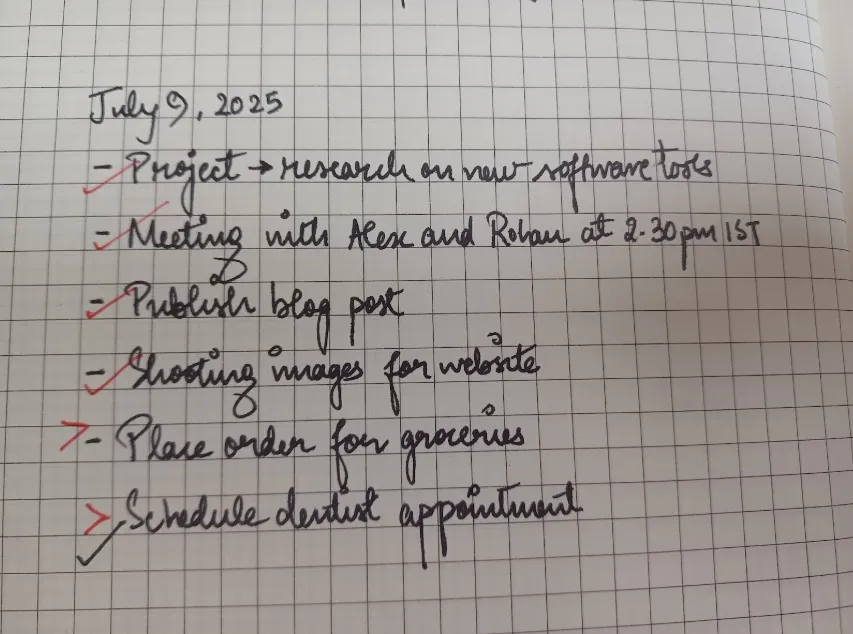 July 9, 2025
- Project → research on new software tools
- Meeting with Alex and Rohan at 2.30pm IST
- Publish blog post
- Shooting images for website
> - Place order for groceries
> Schedule dentist appointment